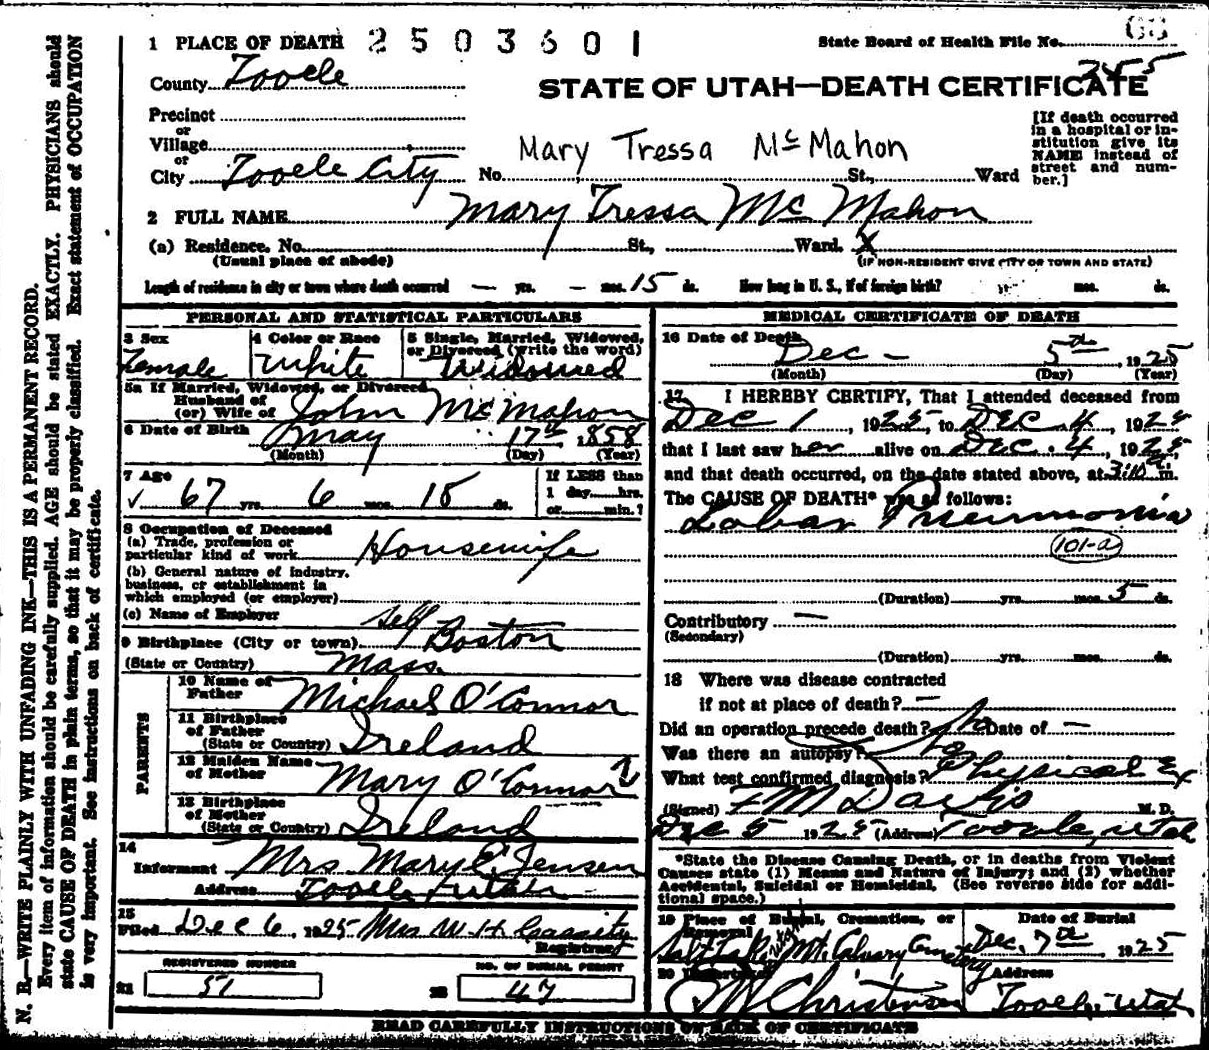 1 PLACE OF DEATH 2503601
State Board of Health File No.
County Tooele
STATE OF UTAH—DEATH CERTIFICATE
245
Precinct
or
Village
or
City Tooele City No. Mary Tressa Mc Mahon St., Ward
[If death occurred
in a hospital or in-
stitution give its
NAME instead of
street and num-
ber.]
2 FULL NAME Mary Tressa Mc Mahon
(a) Residence. No. St., Ward. X
(Usual place of abode)
(IF NON-RESIDENT GIVE CITY OR TOWN AND STATE)
Length of residence in city or town where death occurred — yrs. — mos. 15 ds. How long in U. S., if of foreign birth? yrs. mos. ds.
PERSONAL AND STATISTICAL PARTICULARS
3 Sex
Female
4 Color or Race
White
5 Single, Married, Widowed,
or Divorced (write the word)
Widowed
5a If Married, Widowed, or Divorced
Husband of
(or) Wife of John Mc Mahon
6 Date of Birth May 17th 1858
(Month) (Day) (Year)
7 Age
✓ 67 yrs. 6 mos. 18 ds.
If LESS than
1 day hrs.
or min.?
8 Occupation of Deceased
(a) Trade, profession or
particular kind of work Housewife
(b) General nature of industry,
business, or establishment in
which employed (or employer)
(c) Name of Employer self
9 Birthplace (City or town) Boston
(State or Country) Mass.
PARENTS
10 Name of
Father Michael O'Connor
11 Birthplace
of Father
(State or Country) Ireland
12 Maiden Name
of Mother Mary O'Connor ?
13 Birthplace
of Mother
(State or Country) Ireland
14
Informant Mrs. Mary E. Jensen
Address Tooele Utah
15
Filed Dec 6, 1925 Mrs W H Cassity
Registrar
REGISTERED NUMBER
21 51
NO. OF BURIAL PERMIT
22 47
MEDICAL CERTIFICATE OF DEATH
16 Date of Death
Dec - 5th 1925
(Month) (Day) (Year)
17 I HEREBY CERTIFY, That I attended deceased from
Dec 1, 1925, to Dec. 4, 1925
that I last saw her alive on Dec. 4, 1925,
and that death occurred, on the date stated above, at 3:10 m.
The CAUSE OF DEATH* was as follows:
Lobar Pneumonia
101-a
(Duration) yrs. mos. 5 ds.
Contributory —
(Secondary)
(Duration) yrs. mos. ds.
18 Where was disease contracted
if not at place of death? —
Did an operation precede death? No Date of —
Was there an autopsy? No
What test confirmed diagnosis? Physical Ex
(Signed) F M Davis M. D.
Dec 5 1925 (Address) Tooele, Utah
*State the Disease Causing Death, or in deaths from Violent
Causes state (1) Means and Nature of Injury; and (2) whether
Accidental, Suicidal or Homicidal. (See reverse side for addi-
tional space.)
19 Place of Burial, Cremation, or
Removal
Salt Lake Mt. Calvary Cemetery
Date of Burial
Dec. 7th 1925
20 Undertaker
Christensen
Address
Tooele, Utah
READ CAREFULLY INSTRUCTIONS ON BACK OF CERTIFICATE
N. B.—WRITE PLAINLY WITH UNFADING INK—THIS IS A PERMANENT RECORD.
Every item of information should be carefully supplied. AGE should be stated EXACTLY. PHYSICIANS should
state CAUSE OF DEATH in plain terms, so that it may be properly classified. Exact statement of OCCUPATION
is very important. See instructions on back of certificate.